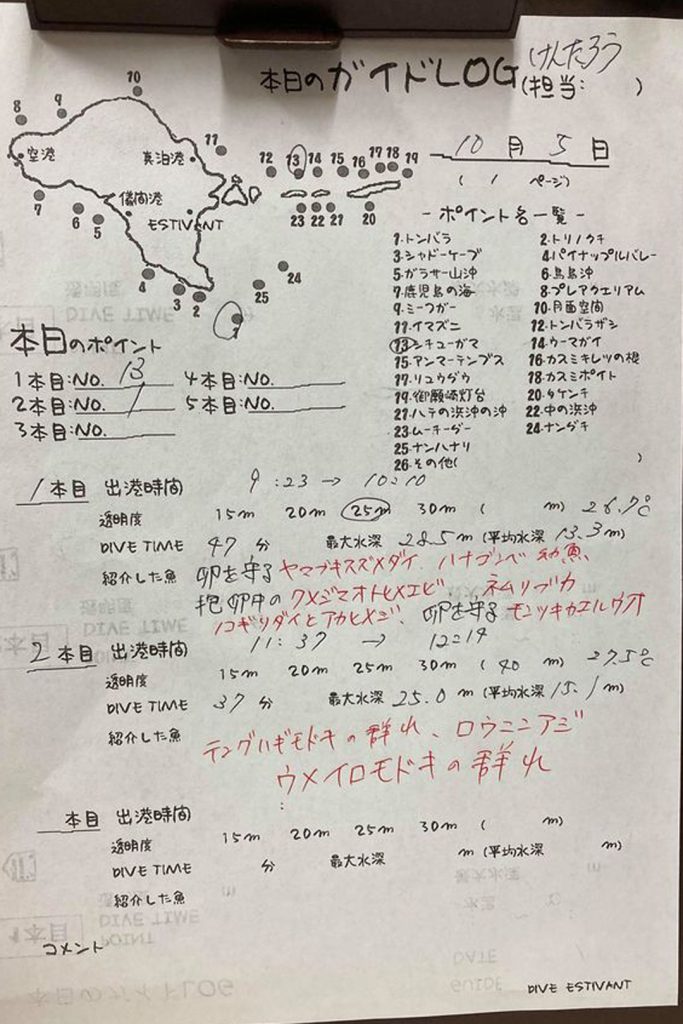 本日のガイドLOG(担当: けんたろう)
10月5日
(1 ページ)
10
8
9
空港
真泊港
11
12
13
14
15
16
17
18
19
7
6
5
儀間港
ESTIVANT
23
22
21
20
4
3
2
1
25
24
-ポイント名一覧-
1.トンバラ 2.トリノクチ
3.シャドーケーブ 4.パイナップルバレー
5.ガラサー山沖 6.鳥島沖
7.鹿児島の海 8.プレアクエリアム
9.ミーフガー 10.月面空間
11.イマズニ 12.トンバラザシ
13.シチューガマ 14.ウーマガイ
15.アンマーテンプス 16.カスミキレツの根
17.リュウグウ 18.カスミポイト
19.御願崎灯台 20.タケンチ
21.ハテの浜沖の沖 22.中の浜沖
23.ムーチーグー 24.ナングチ
25.ナンハナリ
26.その他( )
本日のポイント
1本目:NO. 13 4本目:NO.
2本目:NO. 1 5本目:NO.
3本目:NO.
1本目 出港時間 9:23→10:10
透明度 15m 20m 25m 30m ( m) 26.7℃
DIVE TIME 47分 最大水深 28.5m(平均水深13.3m)
紹介した魚 卵を守るヤマブキスズメダイ、ハナゴンベ幼魚、
抱卵中のクメジマオトヒメエビ ネムリブカ
ノコギリダイとアカヒメジ、卵を守るモンツキカエルウオ
2本目 出港時間 11:37 → 12:14
透明度 15m 20m 25m 30m (40 m) 27.5℃
DIVE TIME 37分 最大水深 25.0m(平均水深15.1m)
紹介した魚 テングハギモドキの群れ、ロウニンアジ
ウメイロモドキの群れ
本目 出港時間 :
透明度 15m 20m 25m 30m ( m)
DIVE TIME 分 最大水深 m(平均水深 m)
紹介した魚
コメント
DIVE ESTIVANT